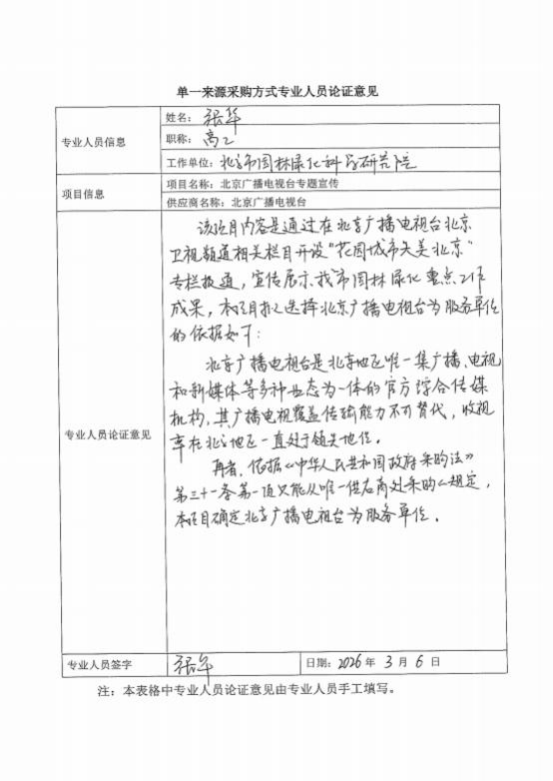 单一来源采购方式专业人员论证意见
专业人员信息
姓名：张华
职称：高工
工作单位：北京市园林绿化科学研究院
项目信息
项目名称：北京广播电视台专题宣传
供应商名称：北京广播电视台
专业人员论证意见
该项目内容是通过在北京广播电视台北京
卫视频道相关栏目开设“花园城市大美北京”
专栏报道，宣传展示我市园林绿化重点工作
成果，本项目拟选择北京广播电视台为服务单位
的依据如下：
北京广播电视台是北京地区唯一集广播、电视
和新媒体等多种业态为一体的官方综合传媒
机构，其广播电视覆盖传统能力不可替代，收视
率在北京地区一直处于领先地位。
再者，依据《中华人民共和国政府采购法》
第三十一条第一项只能从唯一供应商处采购之规定，
本项目确定北京广播电视台为服务单位。
专业人员签字
张华
日期：2026年 3月 6日
注：本表格中专业人员论证意见由专业人员手工填写。